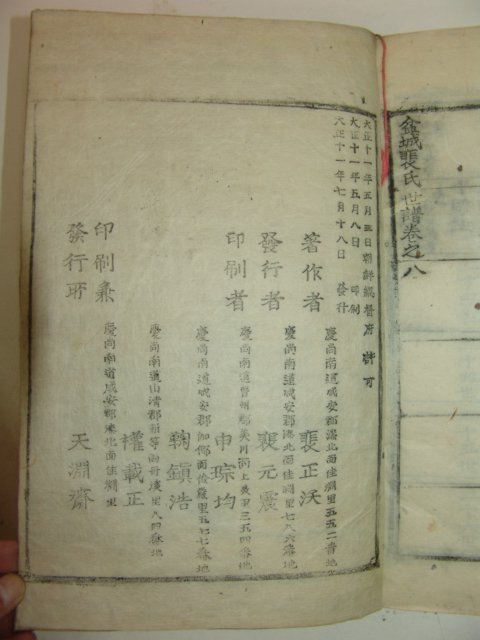 盆城裵氏世譜卷之八
大正十一年五月三日朝鮮總督府 許可
大正十一年五月八日 印刷
大正十一年七月十八日 發行
著作者 慶尚南道咸安郡漆北面佳淵里五五二番地
裵正沃
發行者 慶尚南道咸安郡漆北面佳淵里七九六番地
裵元震
印刷者 慶尚南道晋州郡 三五四番地
申琮均
慶尚南道咸安郡伽倻面儉巖里五七七番地
鞠鎮浩
慶尚南道山清郡新等面丹溪里八四番地
權載正
印刷兼
發行所
慶尚南道咸安郡漆北面佳淵里
天淵齋